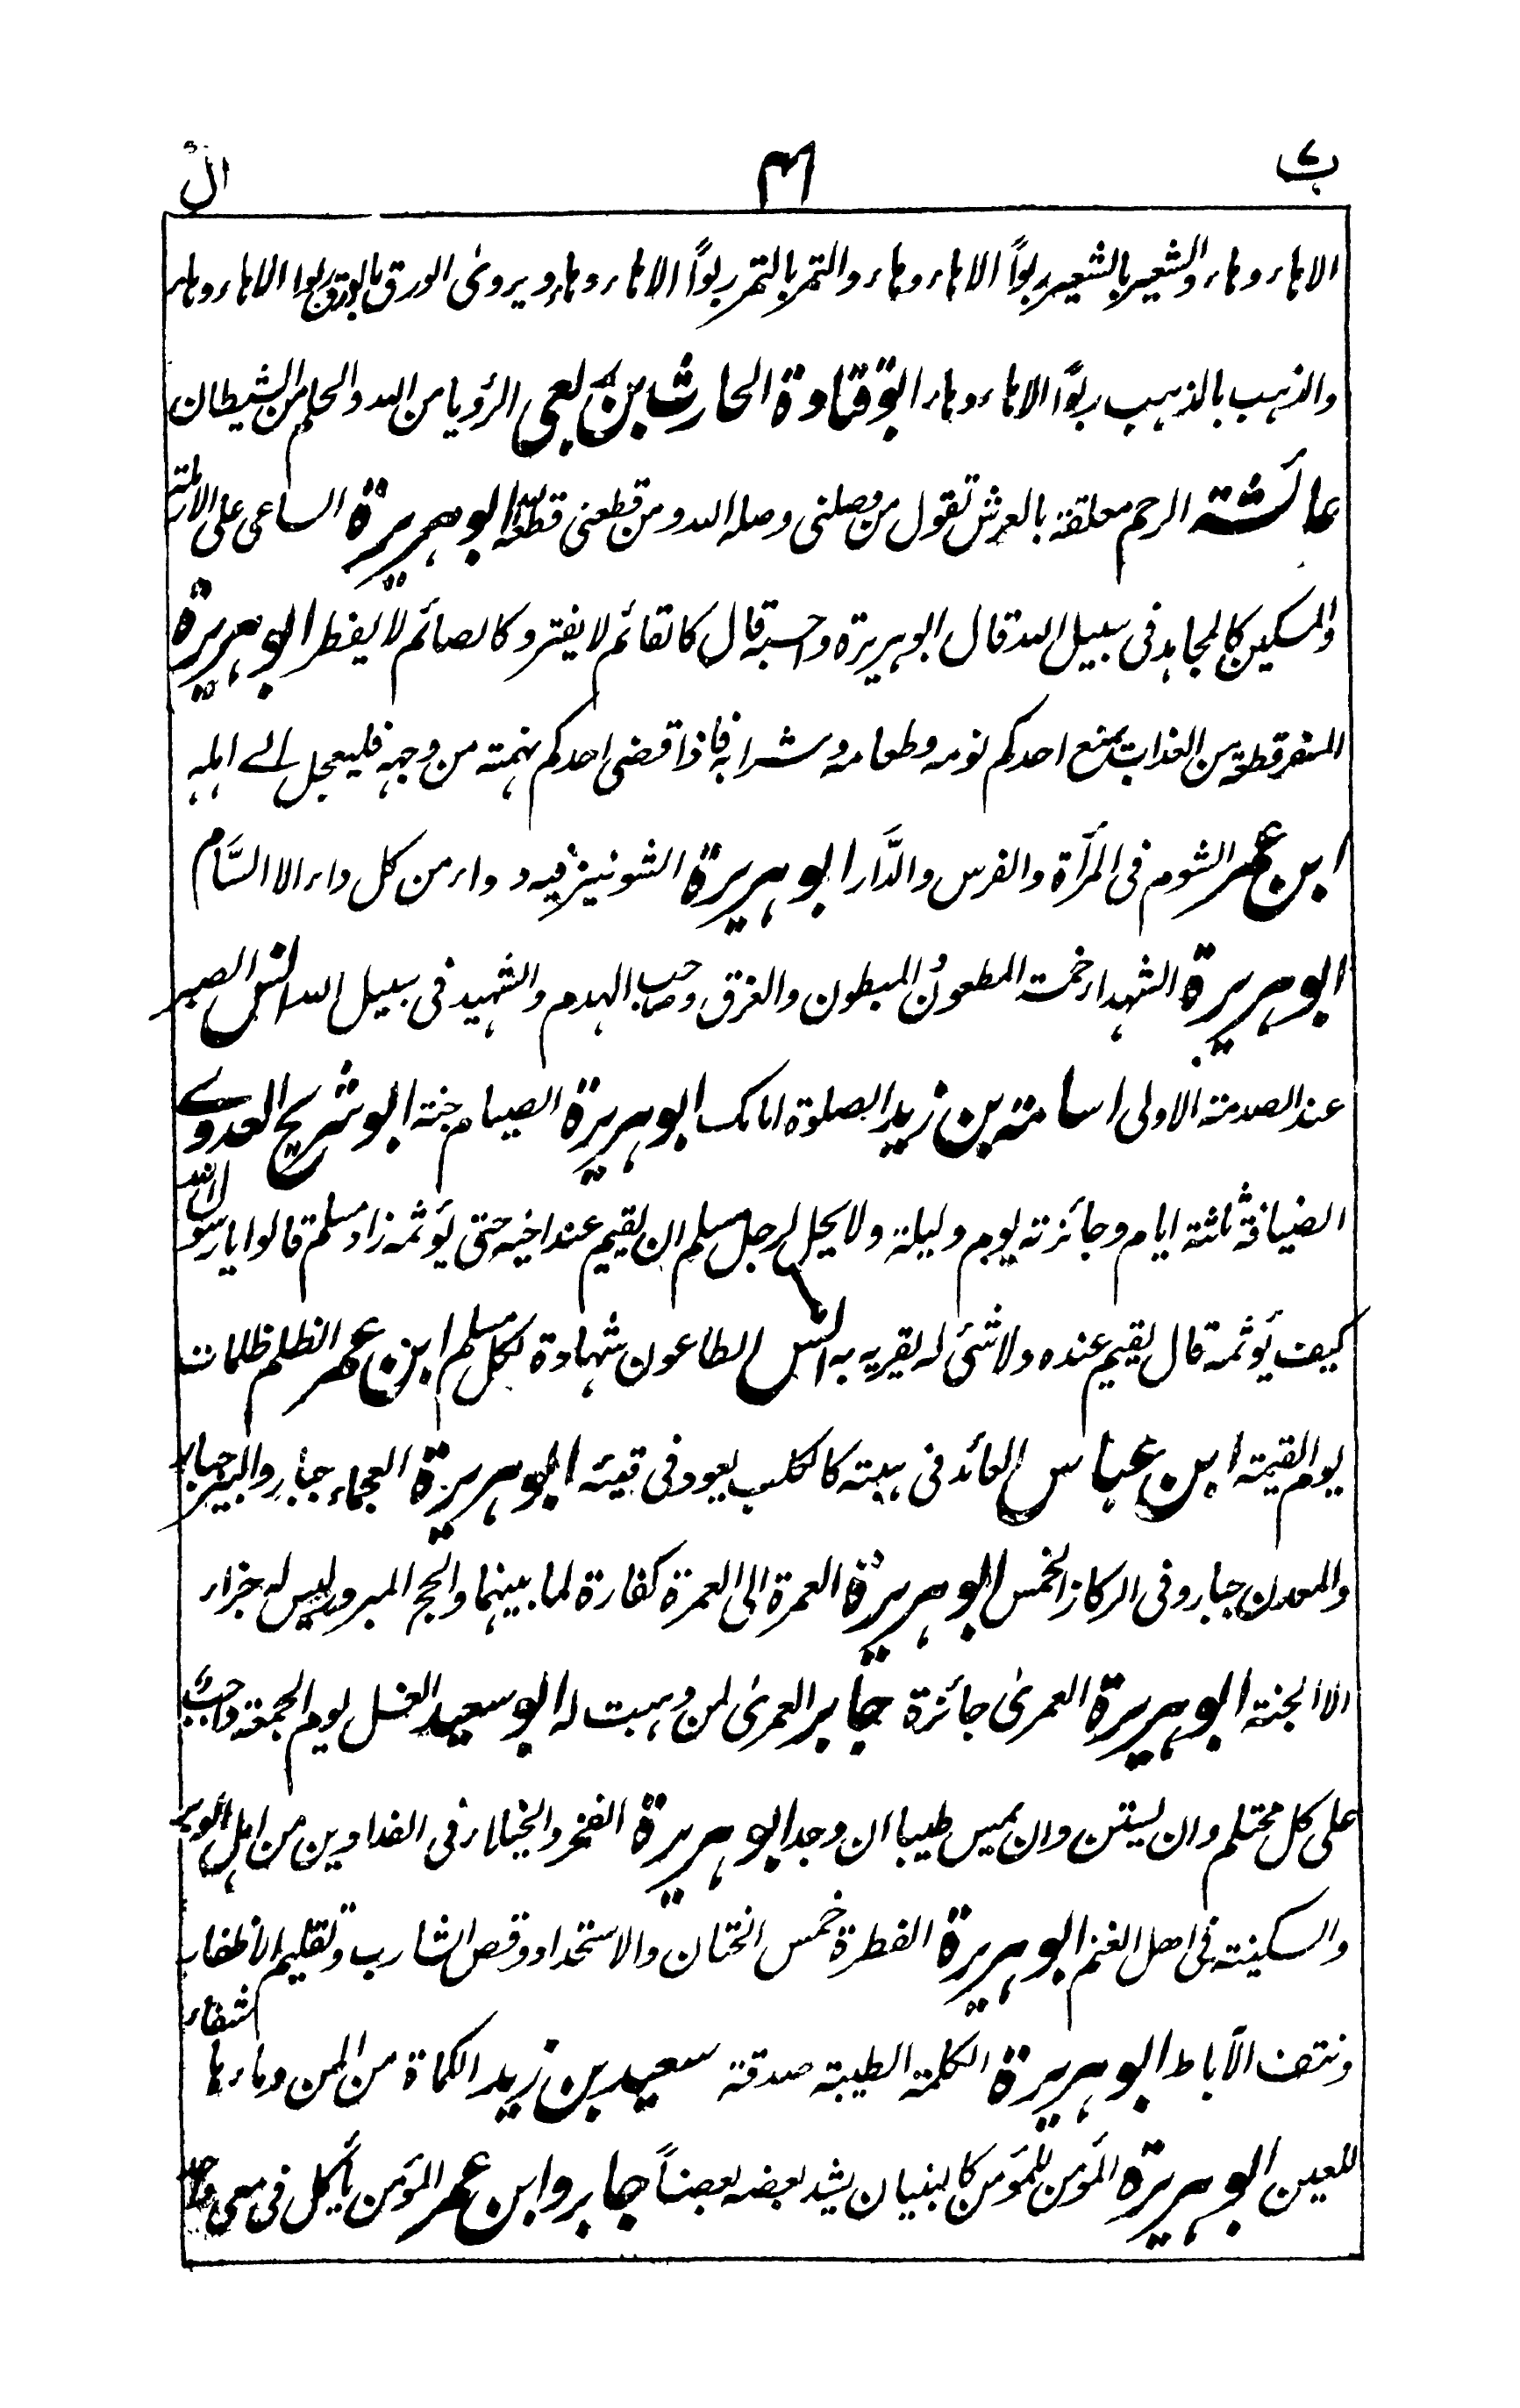 ب ٧ ٤١ ال
الا هاء وهاء والشعير بالشعير ربواً الا هاء وهاء والتمر بالتمر ربواً الا هاء وهاء ويروى الورق بالورق ربوا الا هاء وهاء
والذهب بالذهب ربوًا الا هاء وهاء ابو قتادة الحارث بن ربعى الرؤيا من الله والحلم من الشيطان
عائشة الرحم معلقة بالعرش تقول من وصلنى وصله الله ومن قطعنى قطعه الله ابو هريرة الساعى على الارملة
والمسكين كالمجاهد فى سبيل الله قال ابو هريرة واحسبه قال كالقائم لا يفتر وكالصائم لا يفطر ابو هريرة
السفر قطعة من العذاب يمنع احدكم نومه وطعامه وشرابه فاذا قضى احدكم نهمته من وجهه فليعجل الى اهله
ابن عمر الشوم فى المرأة والفرس والدَّار ابو هريرة الشونيز فيه دواء من كل داء الا السَّام
ابو هريرة الشهداء خمسة المطعون والمبطون والغرق وصاحب الهدم والشهيد فى سبيل الله انس الصبر
عند الصدمة الاولى اسامة بن زيد الصلوة امامك ابو هريرة الصيام جنة ابو شريح العدوى
الضيافة ثلثة ايام وجائزته يوم وليلة ولا يحل لرجل مسلم ان يقيم عند اخيه حتى يؤثمه زاد مسلم قالوا يا رسول الله
كيف يؤثمه قال يقيم عنده ولا شئ له يقريه به انس الطاعون شهادة لكل مسلم ابن عمر الظلم ظلمات
يوم القيمة ابن عباس العائد فى هبته كالكلب يعود فى قيئه ابو هريرة العجماء جبار والبير جبار
والمعدن جبار وفى الركاز الخمس ابو هريرة العمرة الى العمرة كفارة لما بينهما والحج المبرور ليس له جزاء
الا الجنة ابو هريرة العمرى جائزة جابر العمرى لمن وهبت له ابو سعيد الغسل يوم الجمعة واجب
على كل محتلم وان يستن وان يمس طيبا ان وجد ابو هريرة الفخر والخيلاء فى الفدادين من اهل الوبر
والسكينة فى اهل الغنم ابو هريرة الفطرة خمس الختان والاستحداد وقص الشارب وتقليم الاظفار
ونتف الآباط ابو هريرة الكلمة الطيبة صدقة سعيد بن زيد الكماة من المن وماءها شفاء
للعين ابو هريرة المؤمن للمؤمن كالبنيان يشد بعضه بعضاً جابر وابن عمر المؤمن يأكل فى معى واحد